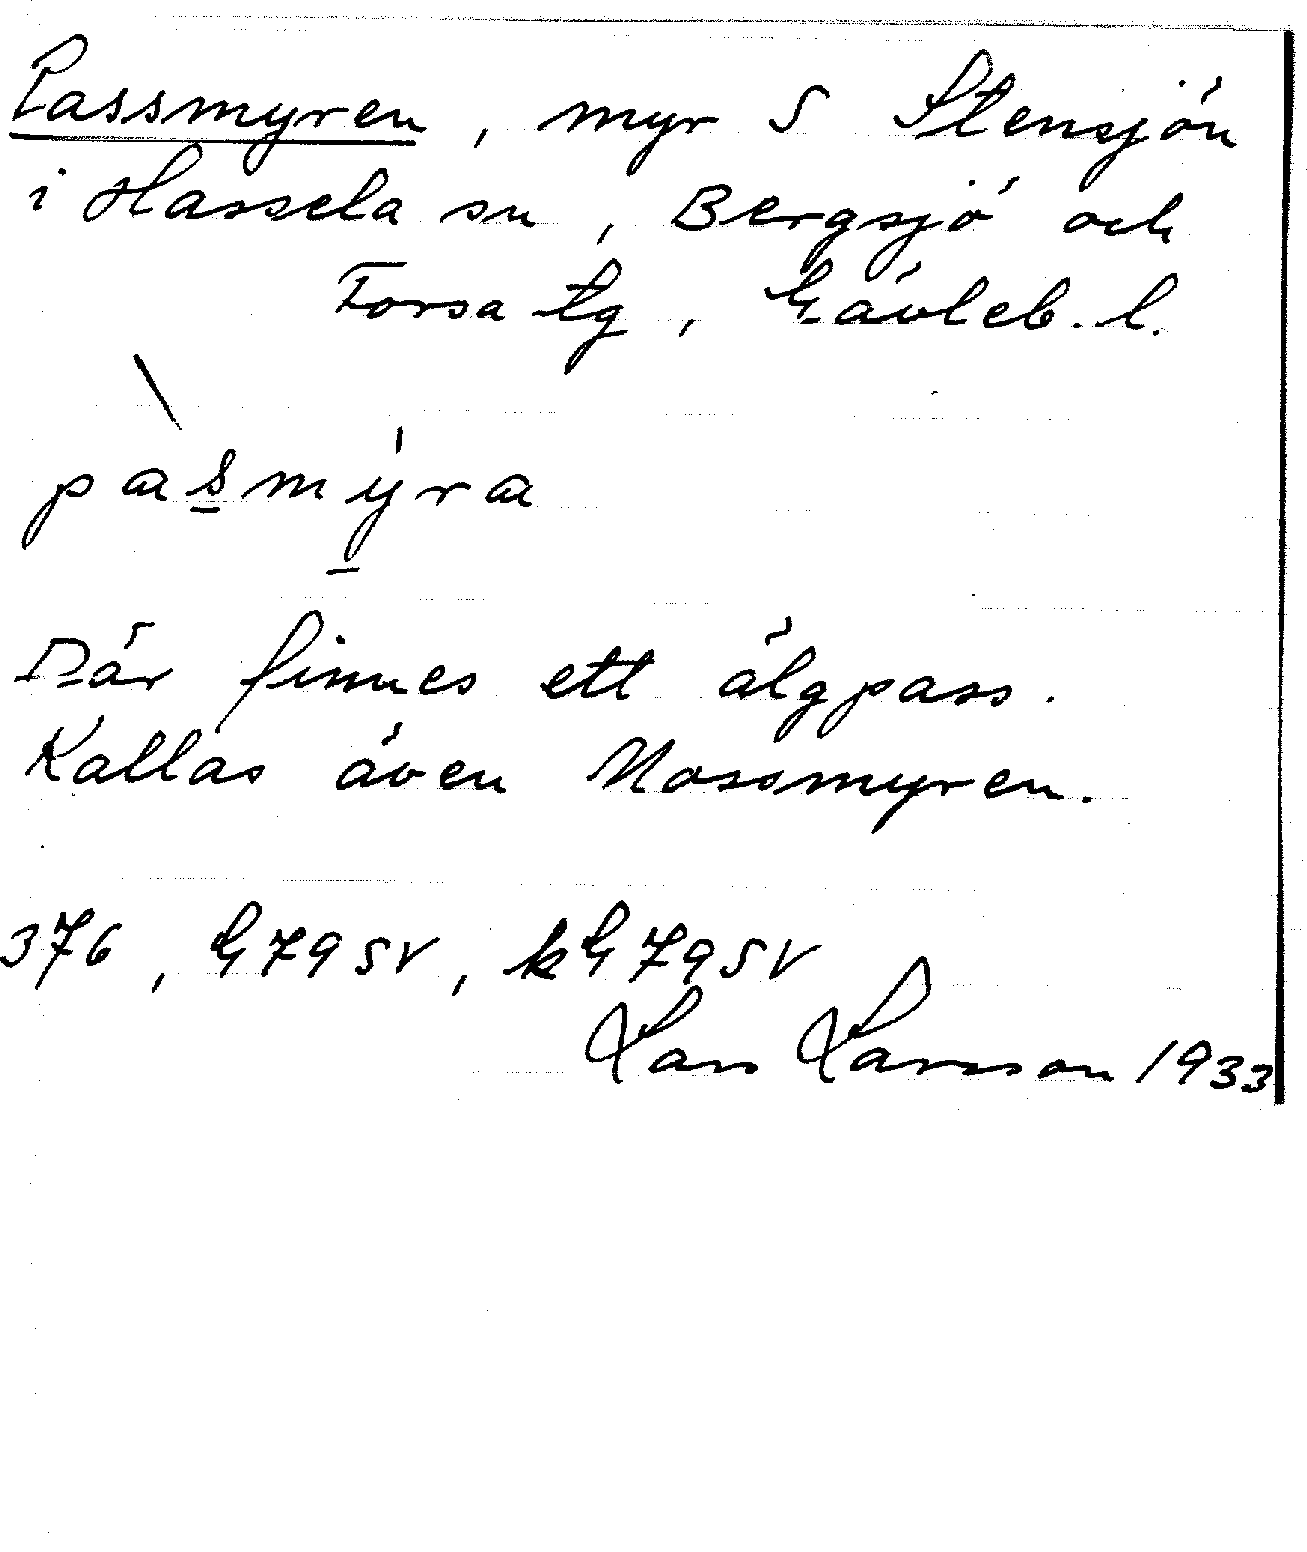 Passmyren, myr S Stensjön
i Hassela sn, Bergsjö och
Forsa tg, Gävleb. l.
pàs̠mý̠ra
Där finnes ett älgpass.
Kallas även Mossmyren.
376, G79SV, kG79SV
Lars Larsson 1933